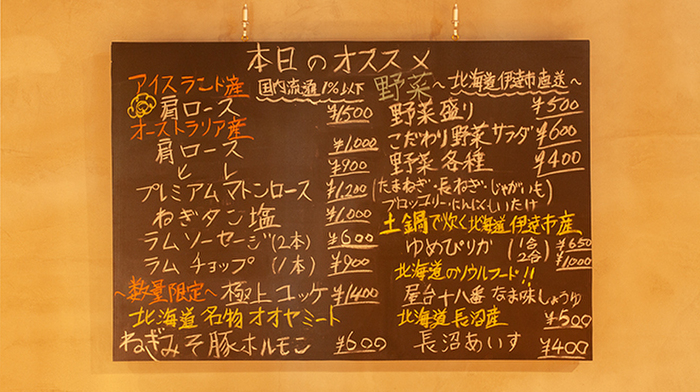 本日のオススメ
アイスランド産 国内流通1%以下
肩ロース ¥1500
オーストラリア産
肩ロース ¥1,000
ヒレ ¥900
プレミアムマトンロース ¥1,200
ねぎタン塩 ¥1,000
ラムソーセージ(2本) ¥600
ラムチョップ(1本) ¥900
〜数量限定〜 極上ユッケ ¥1400
北海道名物オオヤミート
ねぎみそ豚ホルモン ¥600
野菜 〜北海道伊達市直送〜
野菜盛り ¥500
こだわり野菜サラダ ¥600
野菜各種 ¥400
(たまねぎ・長ねぎ・じゃがいも
ブロッコリー・にんにく・しいたけ
土鍋で炊く北海道伊達市産
ゆめぴりか (1合) ¥650
2合) ¥1000
北海道のソウルフード!!
屋台十八番 なま味しょうゆ
¥500
北海道長沼産
長沼あいす ¥400